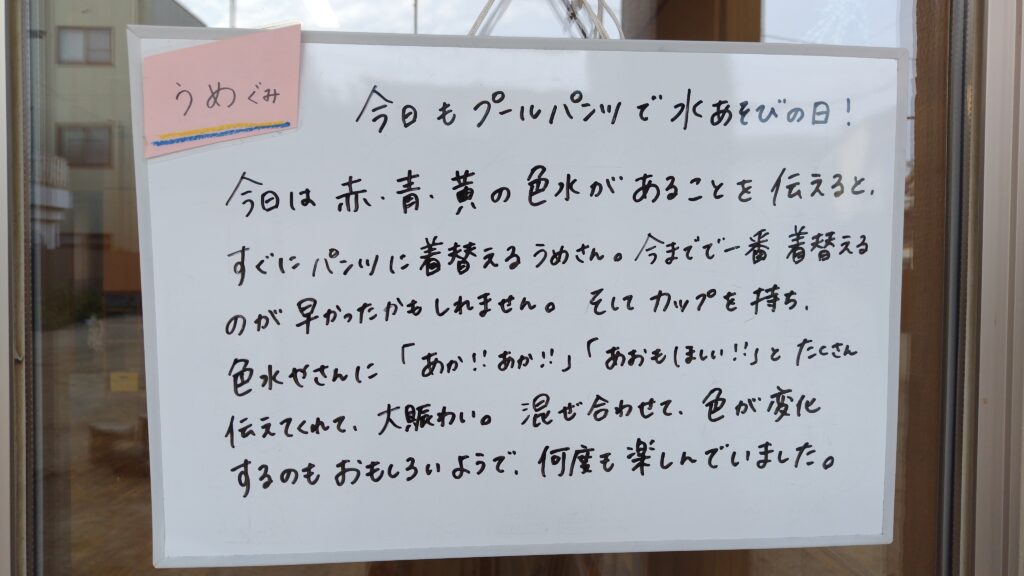 うめぐみ
今日もプールパンツで水あそびの日!
今日は赤・青・黄の色水があることを伝えると、
すぐにパンツに着替えるうめさん。今までで一番着替える
のが早かったかもしれません。そしてカップを持ち、
色水やさんに「あか!!あか!!」「あおもほしい!!」とたくさん
伝えてくれて、大賑わい。混ぜ合わせて、色が変化
するのもおもしろいようで、何度も楽しんでいました。